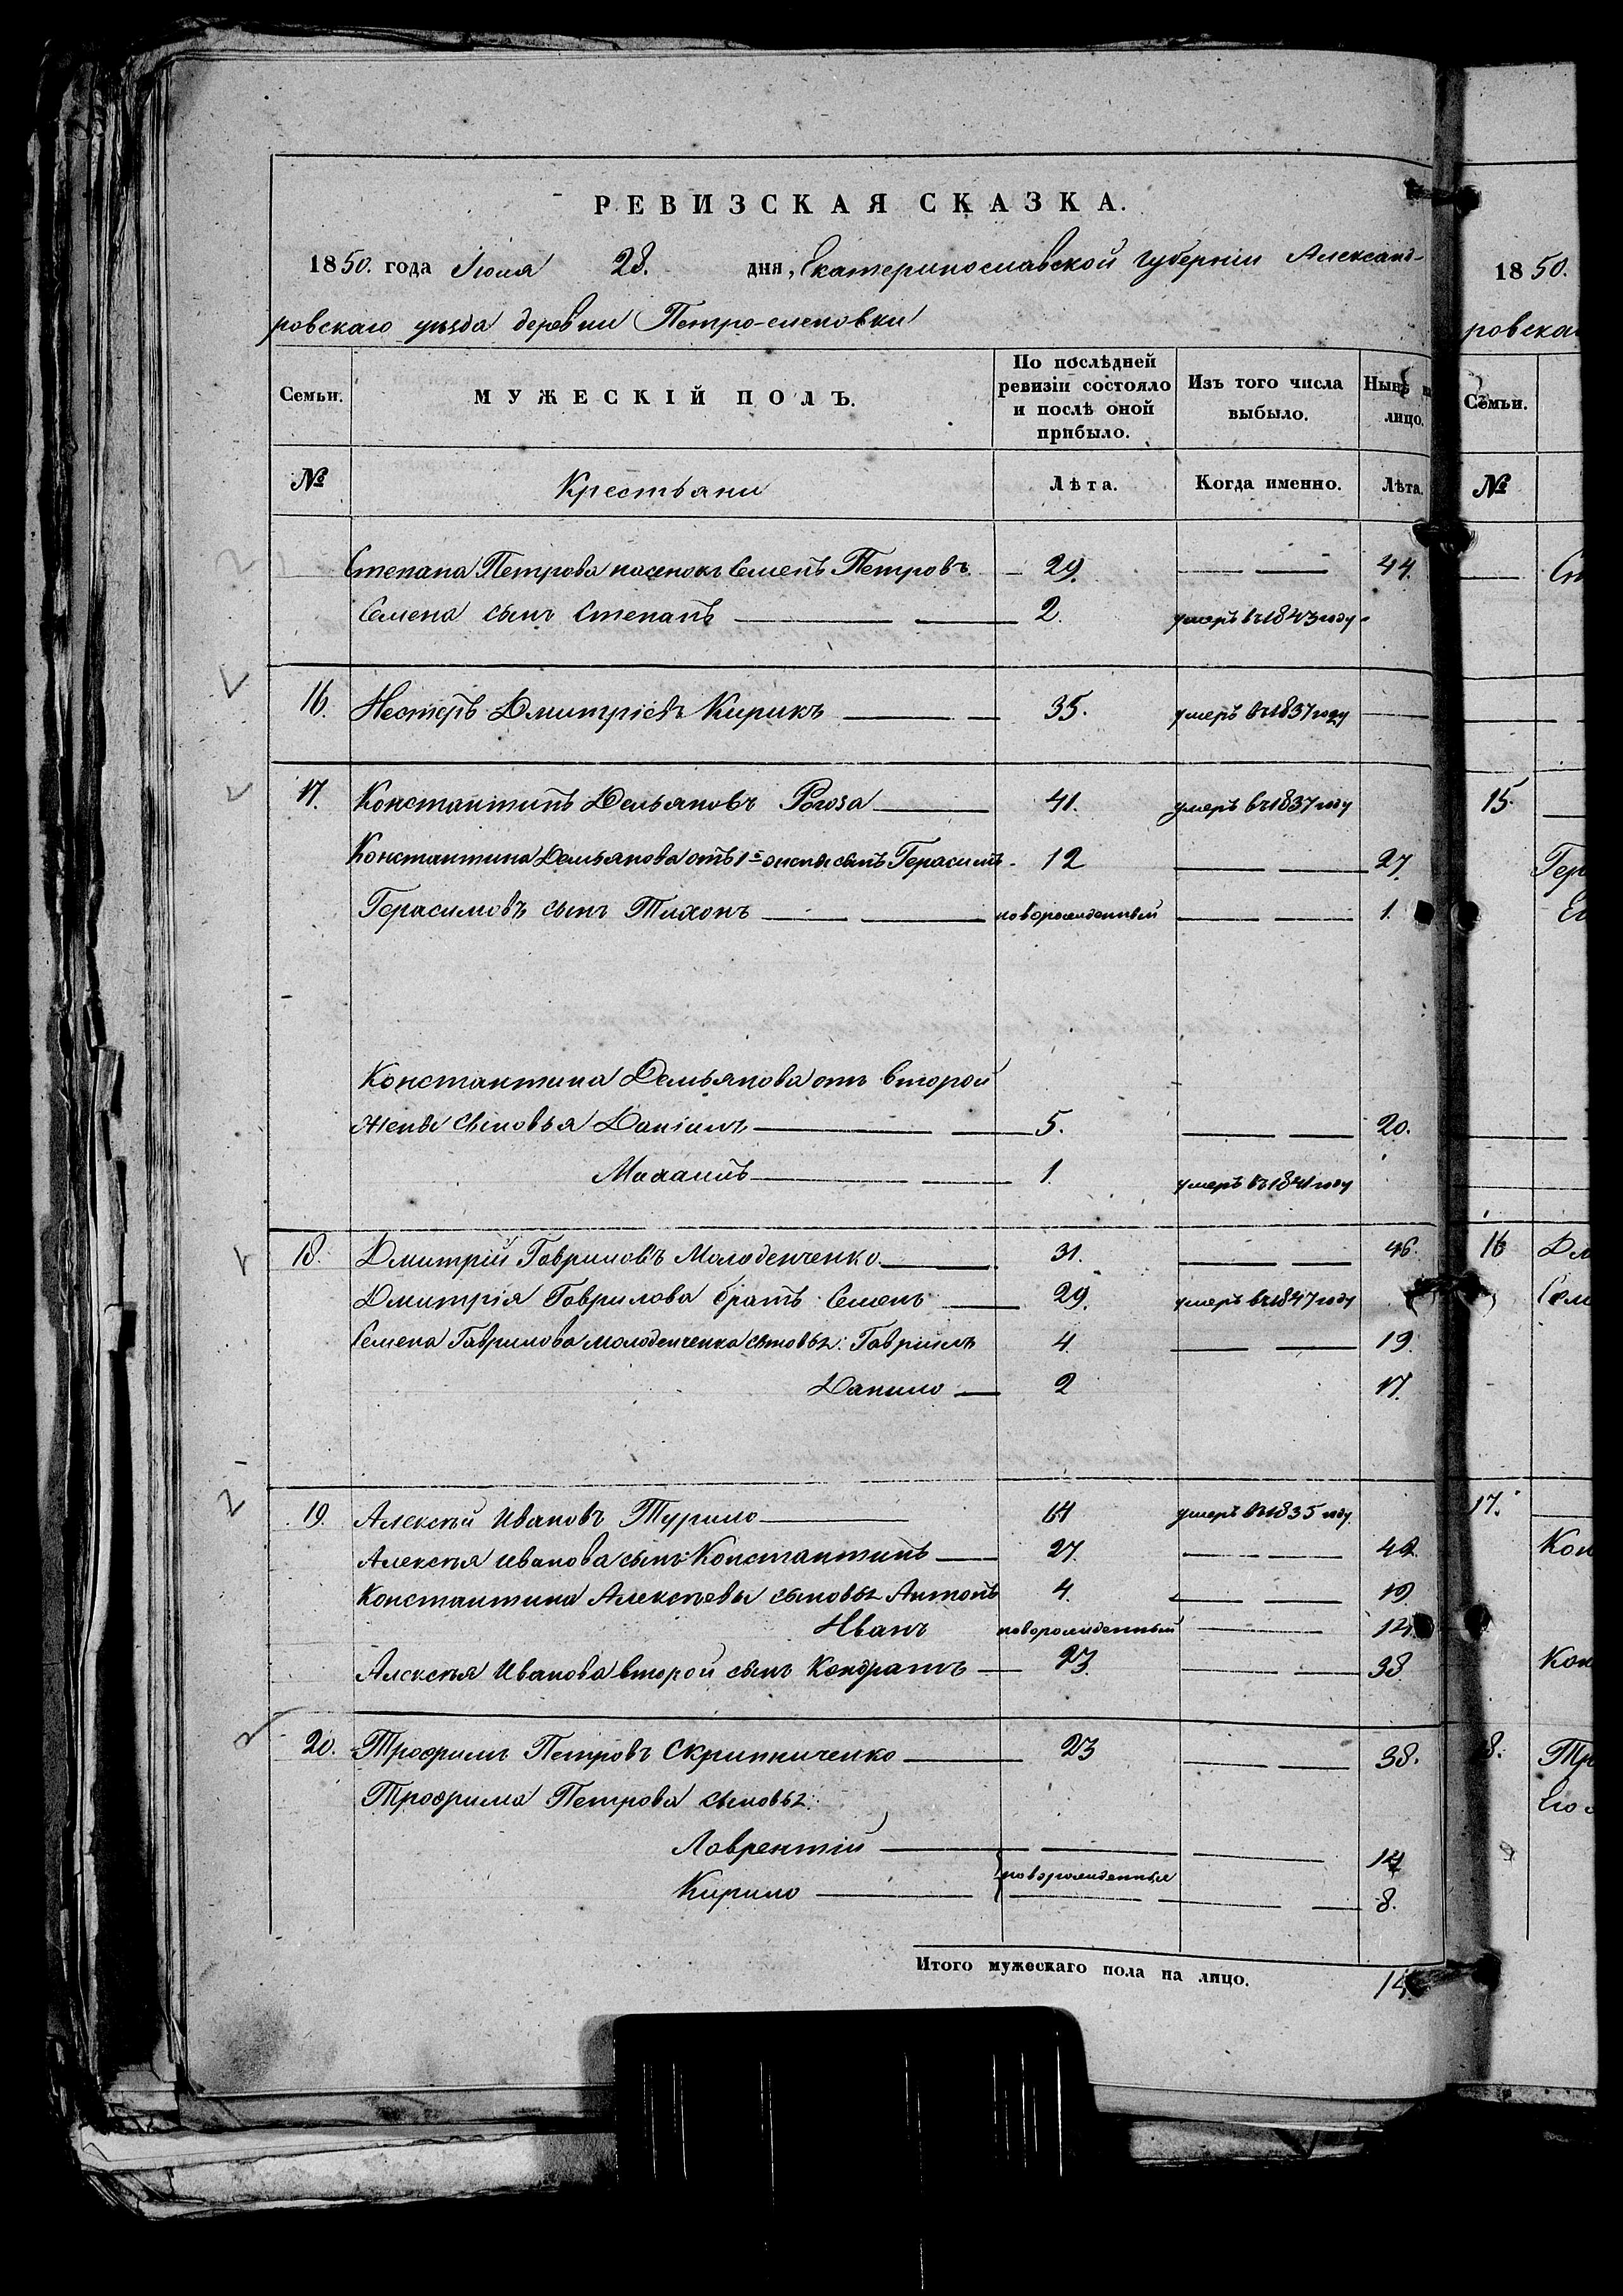 РЕВИЗСКАЯ СКАЗКА.
1850. года Іюля 28. дня, Екатеринославской губерніи Александ-
ровскаго уѣзда деревни Петро-еленовки
Семьи. МУЖЕСКІЙ ПОЛЪ. По послѣдней ревизіи состояло и послѣ оной прибыло. Изъ того числа выбыло. Нынѣ лицо.
№ Крестьяни Лѣта. Когда именно. Лѣта.
Степана Петрова пасенокъ Семенъ Петровъ 29. 44.
Семена сынъ Степанъ 2. умеръ въ 1843 году
16. Нестеръ Дмитріевъ Кирикъ 35. умеръ въ 1837 году
17. Константинъ Демьяновъ Рогоза 41. умеръ въ 1837 году
Константина Демьянова отъ 1й жены сынъ Герасимъ 12 27.
Герасимовъ сынъ Тихонъ новорожденный 1.
Константина Демьянова отъ второй
жены сыновья Даніилъ 5. 20.
Михаилъ 1. умеръ въ 1841 году
18. Дмитрій Гавриловъ Молоденченко 31. 46.
Дмитрія Гаврилова братъ Семенъ 29. умеръ въ 1847 году
Семена Гаврилова Молоденченка сыновья: Гавріилъ 4. 19.
Данило 2 17.
19. Алексѣй Ивановъ Турило 61 умеръ въ 1835 году.
Алексѣя Иванова сынъ Константинъ 27. 42
Константина Алексѣевы сыновья Антонъ 4. 19
Иванъ новорожденный 14
Алексѣя Иванова второй сынъ Кондратъ 23. 38
20. Трофимъ Петровъ Скрипниченко 23 38.
Трофима Петрова сыновья:
Лаврентій 14
новорожденныя
Кирило 8.
Итого мужескаго пола на лицо. 14
1850.
ровска
Семьи.
№
15.
Гер
16 Дм
Сем
17.
Кон
Кон
8. Тр
Его